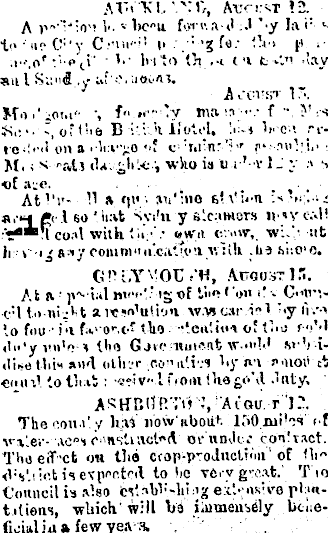 AUCKLAND, AUGUST 12.
A petition has been forwarded by ladies
to the City Council for the
of the to them on
and Sunday afternoons.
AUGUST 15.
formerly manager for Mrs
of the British Hotel, has been
on a charge of criminally assaulting
Mrs daughter, who is under 12 years
of age.
At a quarantine station is being
so that Sydney steamers may call
coal with their own crew, without
having any communication with the shore.
GREYMOUTH, AUGUST 15.
At a special meeting of the County Coun-
cil to-night a resolution was carried by five
to four in favor of the retention of the gold
duty unless the Government would subsi-
dise this and other counties by an amount
equal to that received from the gold duty.
ASHBURTON, AUGUST 12.
The county has now about 150 miles of
water-races constructed or under contract.
The effect on the crop-production of the
district is expected to be very great. The
Council is also establishing extensive plan-
tations, which will be immensely bene-
ficial in a few years.